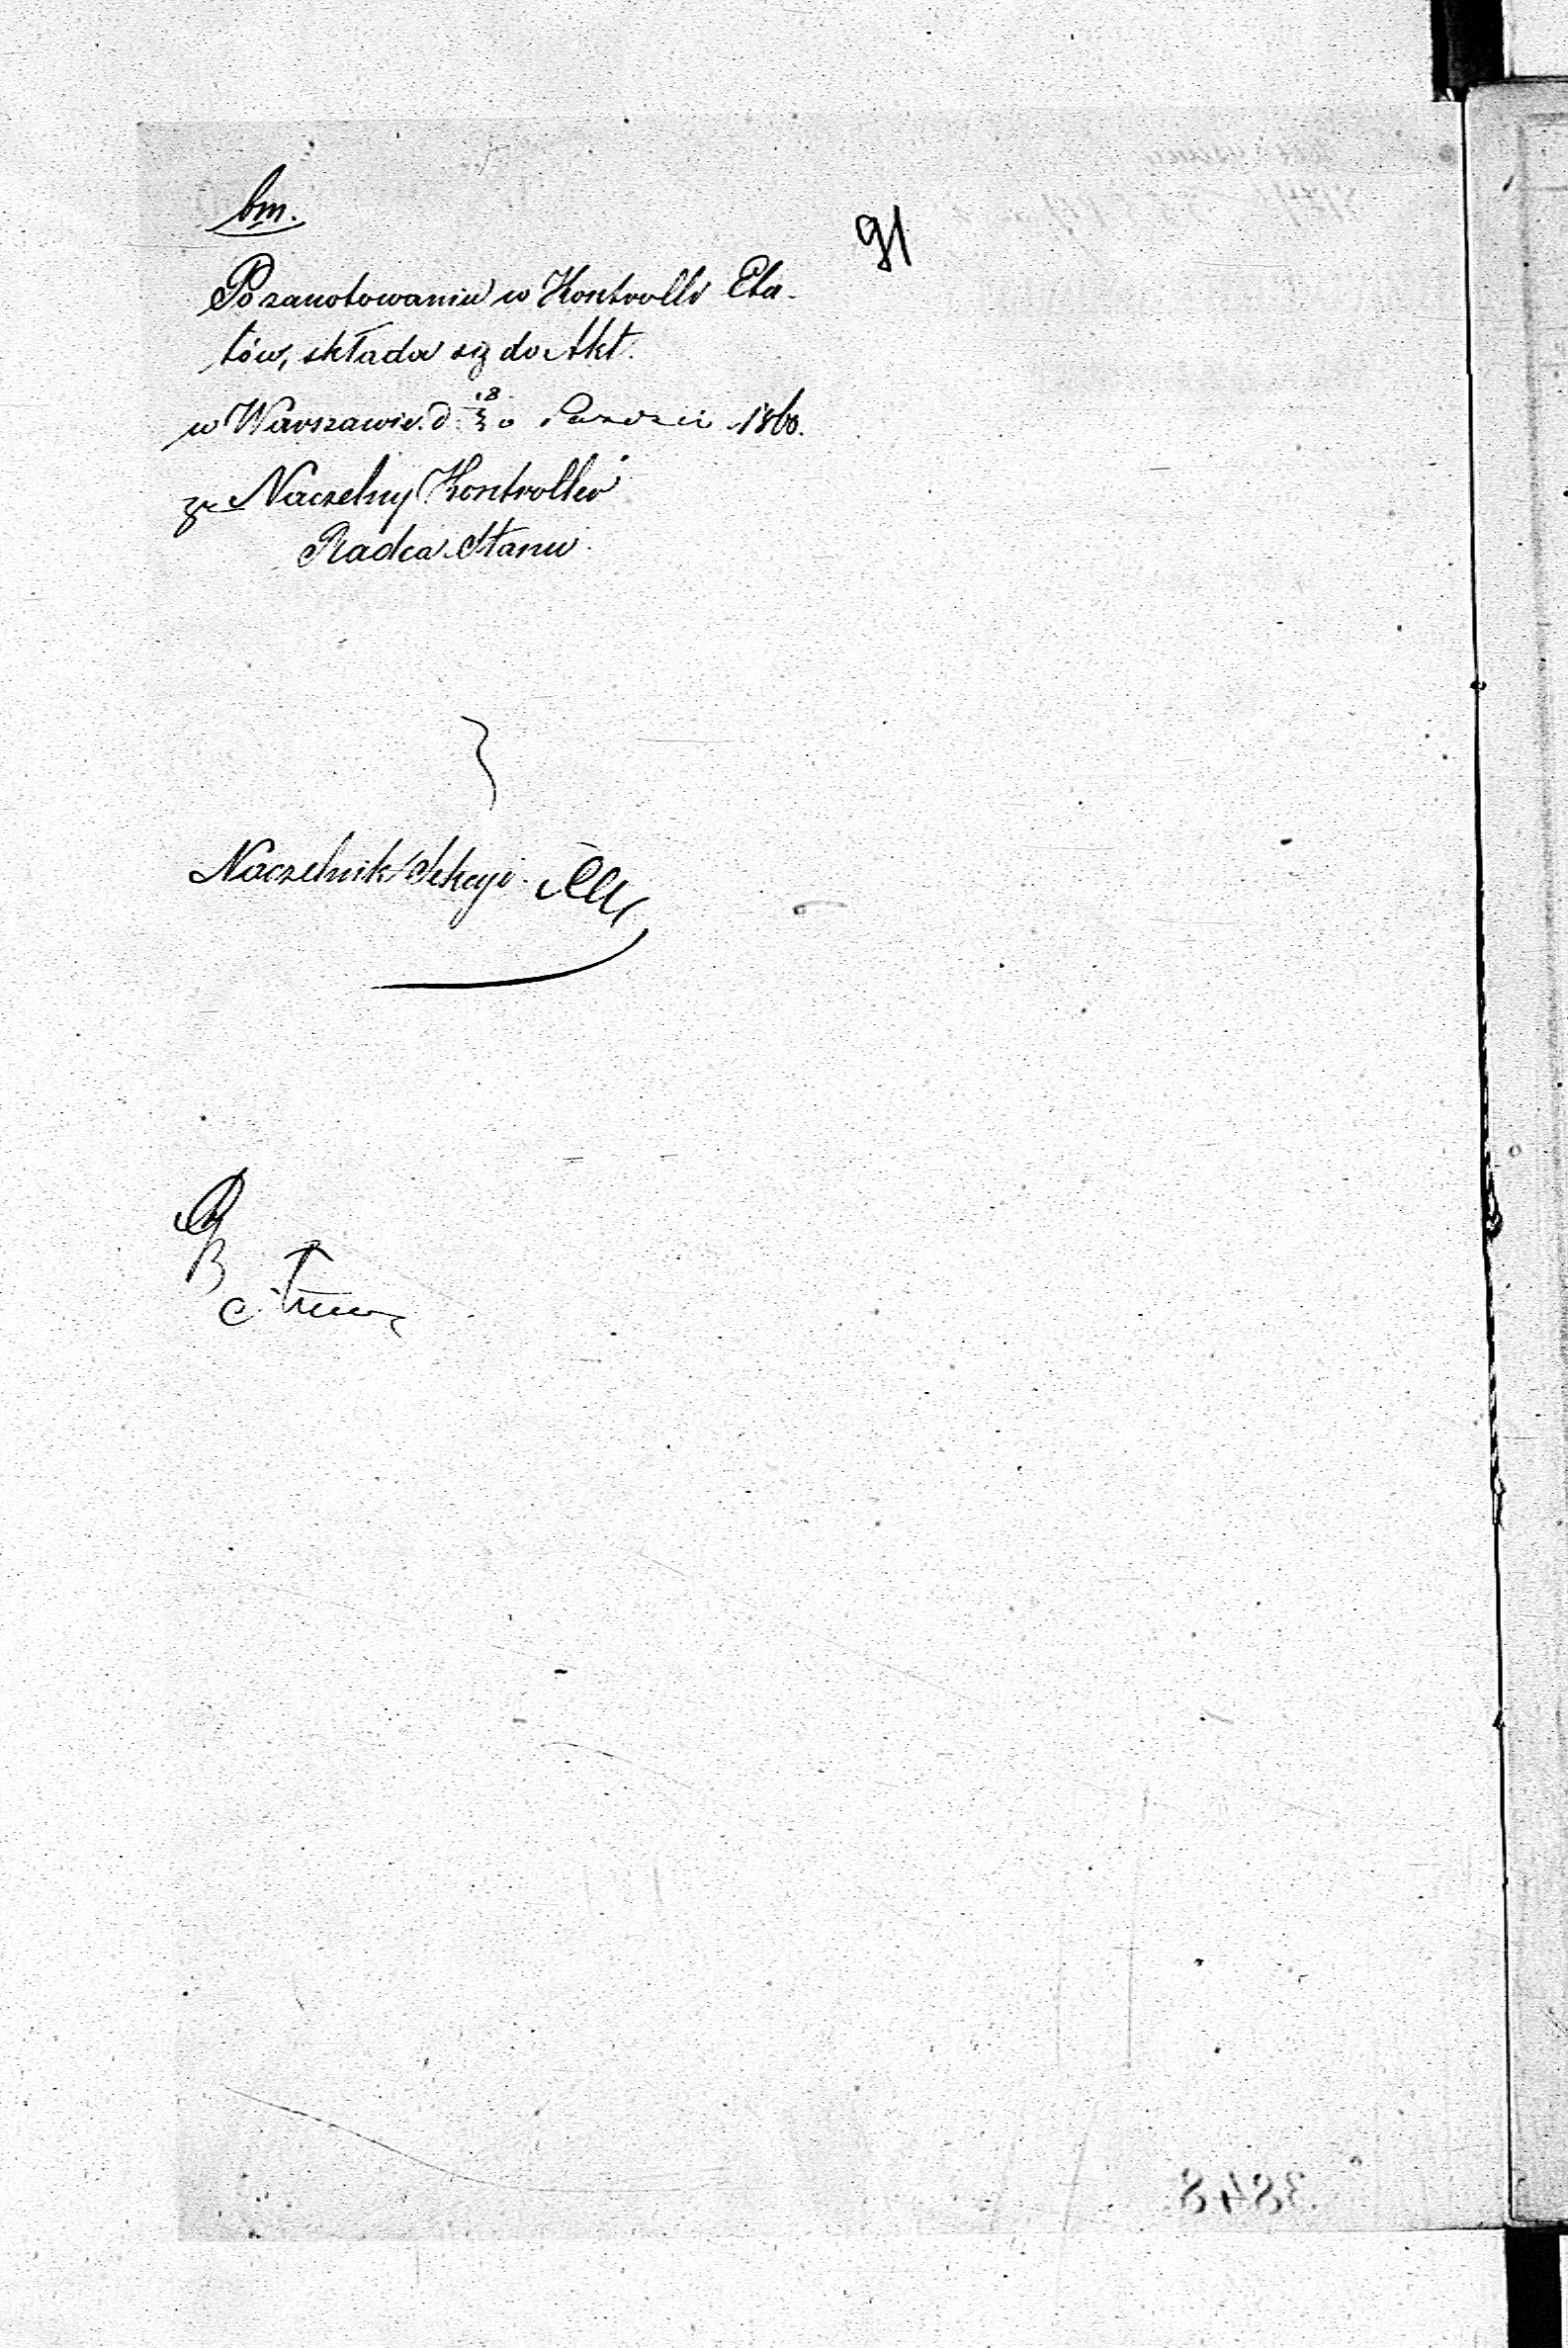 bm.
91
Po zanotowaniu w Kontrolli Eta-
tów, składa się do Akt.
w Warszawie d. 18/30 Paździer 1860.
za Naczelny Kontroller
Radca Stanu
Naczelnik Sekcyi
3848